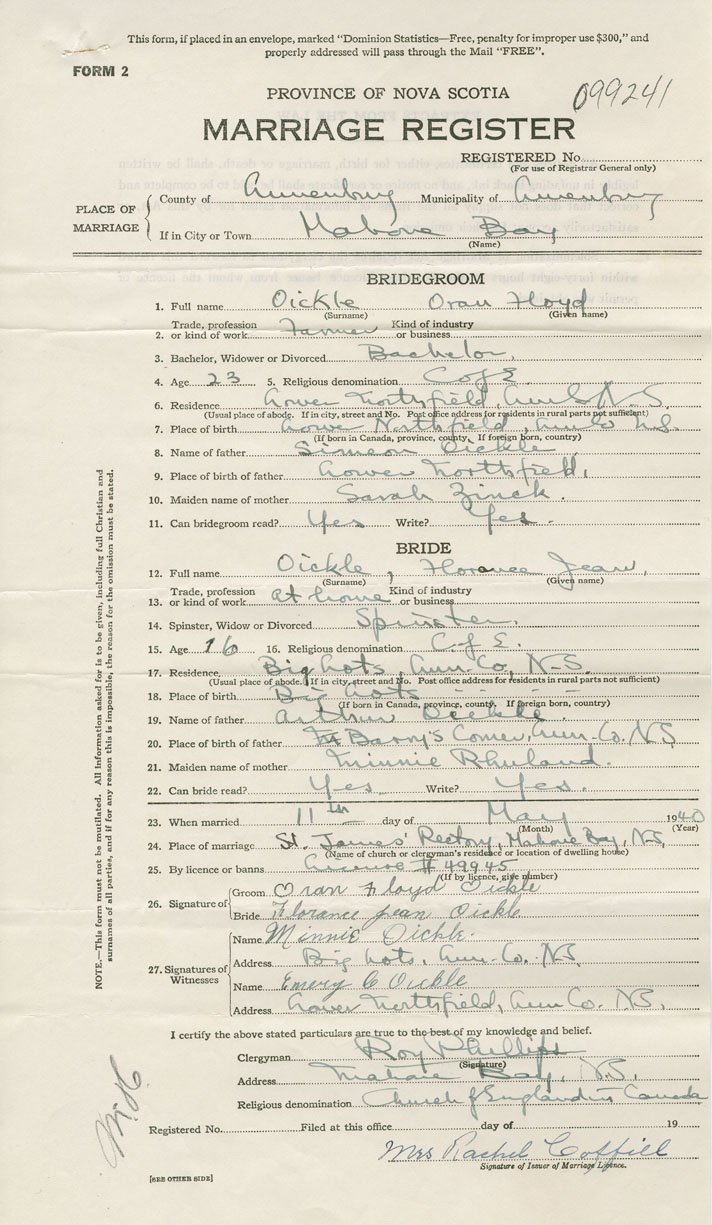 This form, if placed in an envelope, marked "Dominion Statistics—Free, penalty for improper use $300," and
properly addressed will pass through the Mail "FREE".
FORM 2
PROVINCE OF NOVA SCOTIA
099241
MARRIAGE REGISTER
REGISTERED No.
(For use of Registrar General only)
PLACE OF MARRIAGE
County of Lunenburg Municipality of Lunenburg
If in City or Town Mahone Bay
(Name)
BRIDEGROOM
1. Full name Oickle Oran Floyd
(Surname) (Given name)
2. Trade, profession or kind of work Farmer Kind of industry or business
3. Bachelor, Widower or Divorced Bachelor.
4. Age 23 5. Religious denomination C of E
6. Residence Lower Northfield, Lun. Co N.S.
(Usual place of abode. If in city, street and No. Post office address for residents in rural parts not sufficient)
7. Place of birth Lower Northfield, Lun Co N.S.
(If born in Canada, province, county. If foreign born, country)
8. Name of father Simeon Oickle
9. Place of birth of father Lower Northfield,
10. Maiden name of mother Sarah Zinck.
11. Can bridegroom read? Yes Write? Yes.
BRIDE
12. Full name Oickle, Florance Jean,
(Surname) (Given name)
13. Trade, profession or kind of work at home Kind of industry or business
14. Spinster, Widow or Divorced Spinster.
15. Age 16 16. Religious denomination C of E.
17. Residence Big Lots, Lun. Co, N-S.
(Usual place of abode. If in city, street and No. Post office address for residents in rural parts not sufficient)
18. Place of birth Big Lots - - - -
(If born in Canada, province, county. If foreign born, country)
19. Name of father Arthur Oickle
20. Place of birth of father Barry's Corner, Lun. Co. N.S
21. Maiden name of mother Minnie Rhuland.
22. Can bride read? Yes Write? Yes.
23. When married 11th day of May 1940
(Month) (Year)
24. Place of marriage St. James' Rectory, Mahone Bay, N.S,
(Name of church or clergyman's residence or location of dwelling house)
25. By licence or banns License # 49945
(If by licence, give number)
26. Signature of
Groom Oran Floyd Oickle
Bride Florance Jean Oickle
27. Signatures of Witnesses
Name Minnie Oickle.
Address Big Lots, Lun. Co. N.S
Name Emery C Oickle
Address Lower Northfield, Lun Co. N.S.
I certify the above stated particulars are true to the best of my knowledge and belief.
Clergyman Roy Phillips
(Signature)
Address Mahone Bay, N.S.
Religious denomination Church of England in Canada
Registered No. Filed at this office day of 19
Mrs Rachel Coffill
Signature of Issuer of Marriage Licence.
[SEE OTHER SIDE]
NOTE.—This form must not be mutilated. All information asked for is to be given, including full Christian and
surnames of all parties, and if for any reason this is impossible, the reason for the omission must be stated.